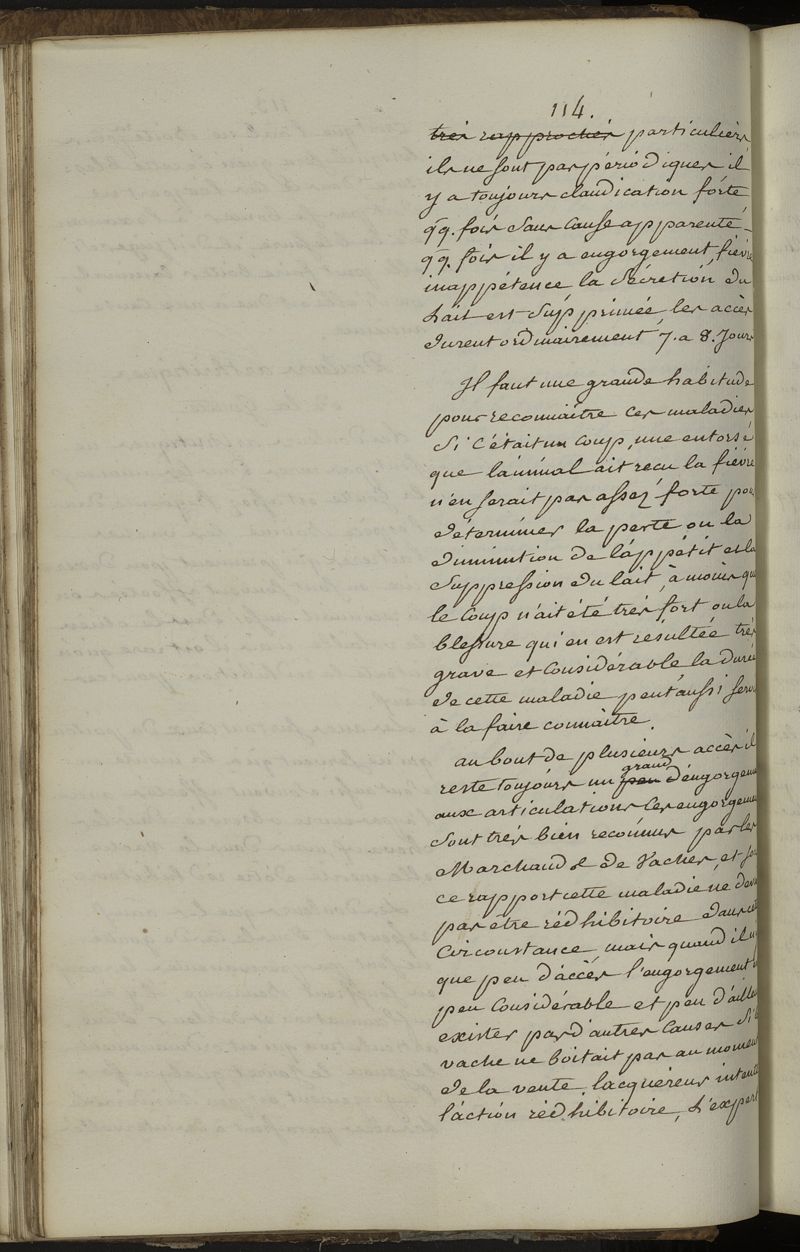 114.
très rapprochés particuliers
ils ne sont pas périodiques il
y a toujours claudication forte
qq. fois sans cause apparente
qq. fois il y a engorgement, fièvre
inappétence la sécrétion du
Lait est supprimée les accès
durent ordinairement 7. a 8. Jours
Il faut une grande habitude
pour reconnaitre ces maladies
Si c'était un coup, une entorse
que l'animal ait reçu la fièvre
n'en serait pas assez forte pou
déterminer la perte ou la
diminution de l'appétit et la
Suppression du lait, à moins que
le Coup n'ait été très fort ou la
blessure qui en est résultée très
grave et Considérable la durée
de cette maladie peut aussi servi
à la faire connaitre.
au bout de plusieurs accès il
reste toujours un peu grand d'engorgeme
aux articulations Ces engorgeme
Sont très bien reconnus par les
Marchands de Vaches, et so
ce rapport cette maladie ne dev
pas être rédhibitoire dans
Circonstance, mais quand il n
que peu d'accès l'engorgement
peu Considérable et peu d'aille
exister par d'autres Causes Si
vache ne boitait pas au momen
de la vente, l'acquéreur intent
l'action rédhibitoire, L'expert